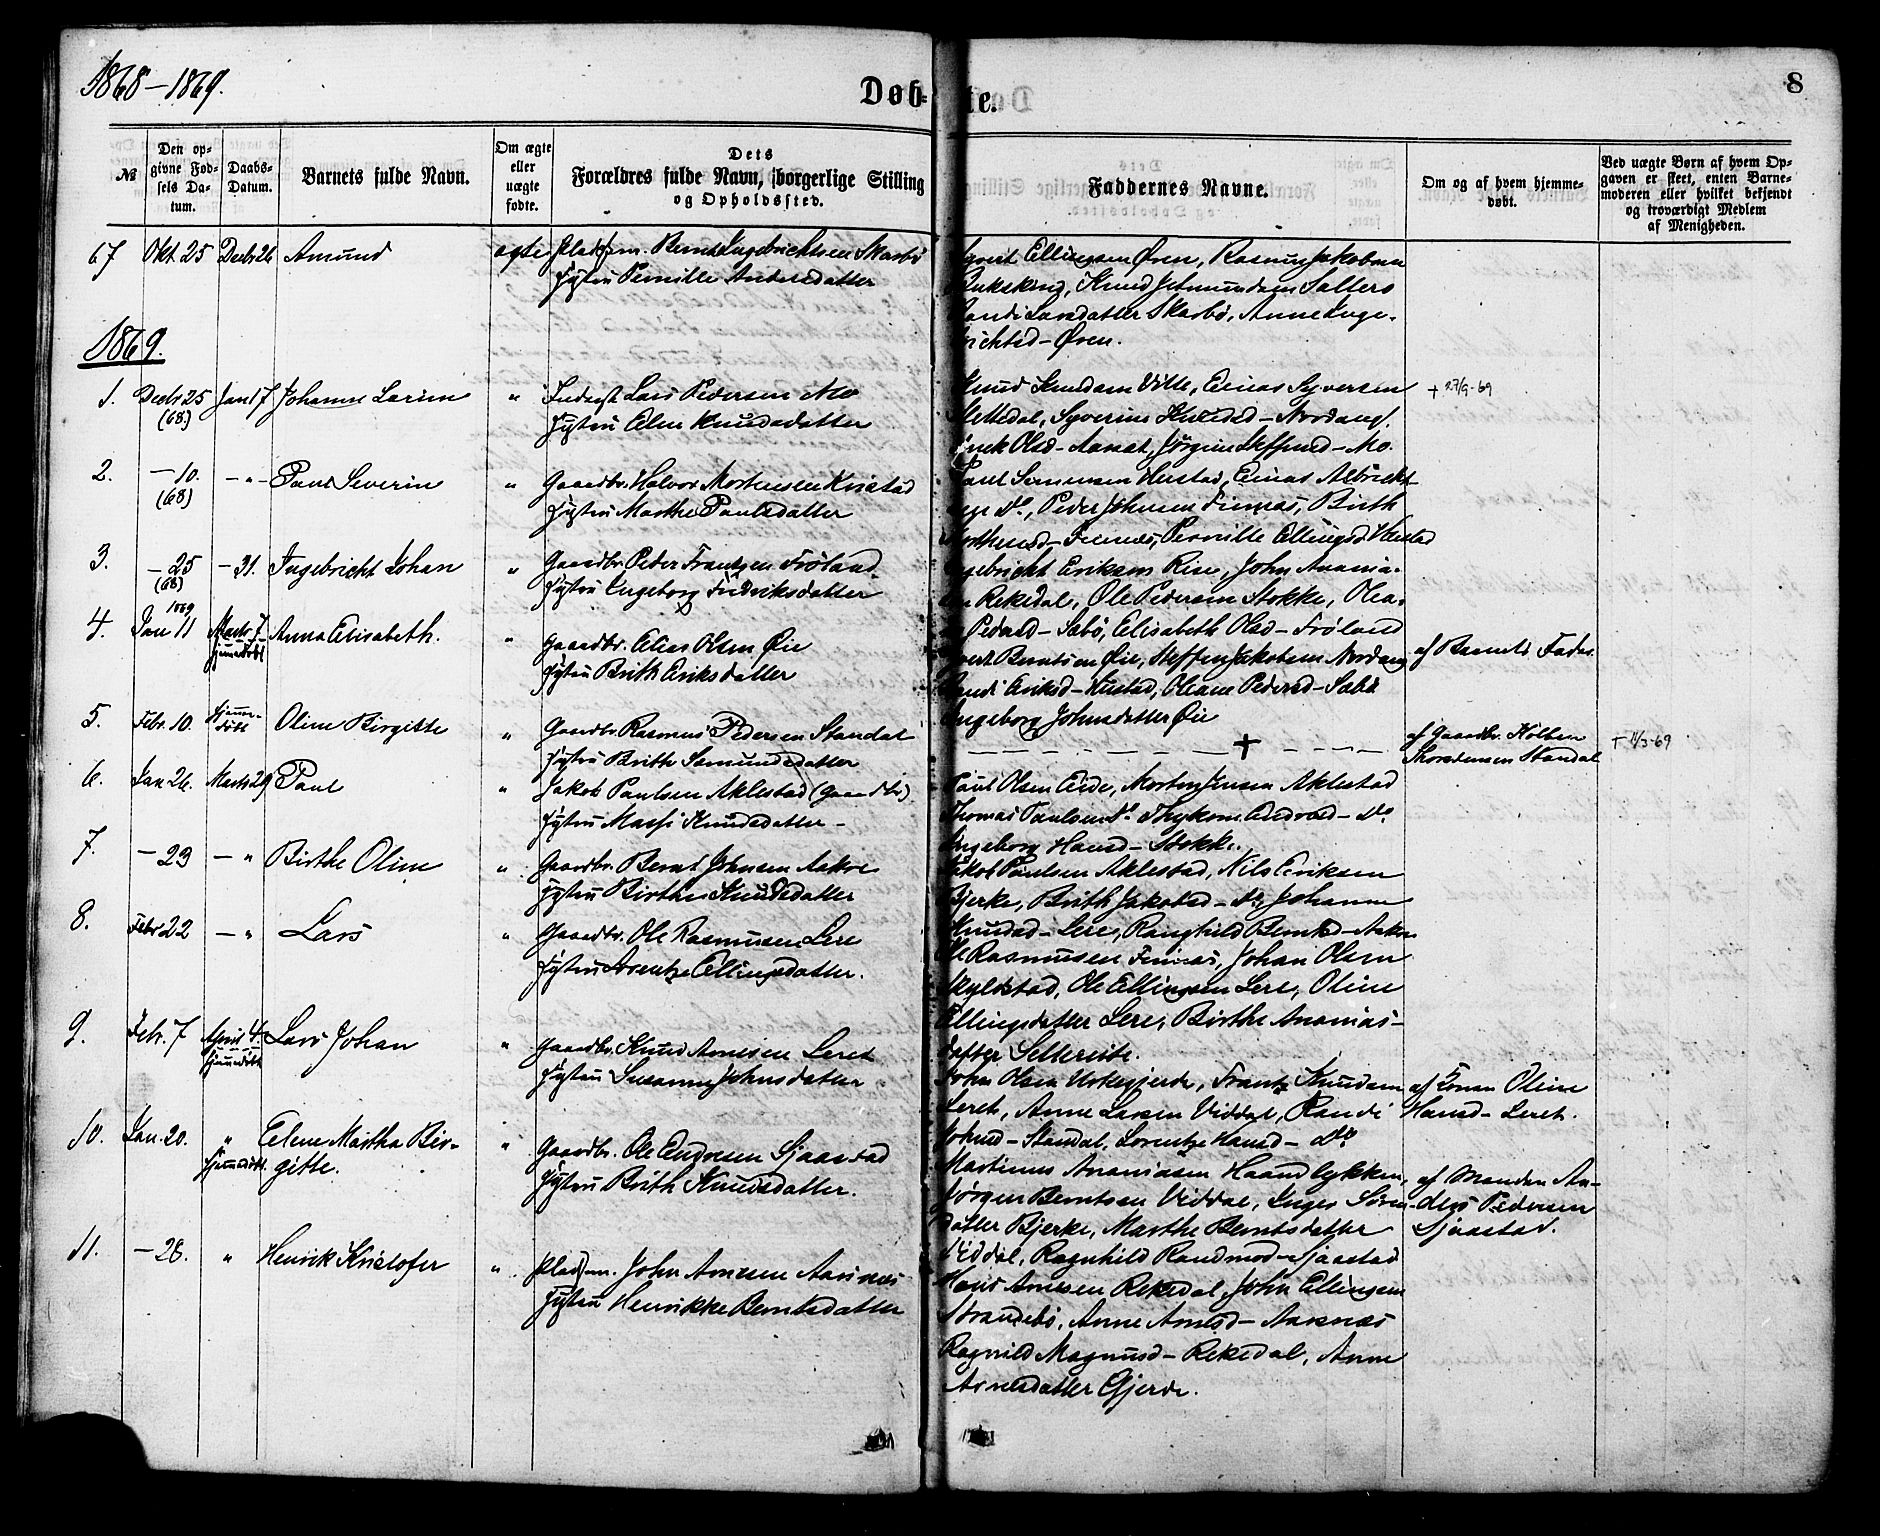 1868-1869.
Døb-te.
8
№
Den opgivne Fødsels Datum.
Daabs-Datum.
Barnets fulde Navn.
Om ægte eller uægte fødte.
Dets Forældres fulde Navn, borgerlige Stilling og Opholdssted.
Faddernes Navne.
Om og af hvem hjemmedøbt.
Ved uægte Børn af hvem Opgaven er skeet, enten Barnemoderen eller hvilket bekjendt og troværdigt Medlem af Menigheden.
67 Okt 25 Decbr 26 Amund ægte Pladsm. Bernt Ingebrichtsen Skarbø
Hustru Pernille Andersdatter
Syvert Ellingsen Øren, Rasmus Jakobsen
Knud
Randi Larsdatter Skarbø, Anne Inge-
brichtsd- Øren.
1869.
1. Decbr 25 (68) Jan 17 Johanne Larine " Inderst Lars Pedersen Mo
Hustru Elen Knudsdatter
Knud Knudsen Vitte, Elias Syversen
Slettedal, Syverine Knudsd- Nordang,
Olsd- Aarsæt, Jørgine Steffensd- Mo.
+ 27/9-69
2. -10. (68) -"- Paul Severin " Gaardbr. Halvor Mortensen Kvistad
Hustru Marthe Paulsdatter
Paul Hustad, Elias Albricht-
Do., Peder Johnsen Finnæs, Birth
Finnæs, Pernille Ellingsd Hustad
3. -25 (68) -31. Ingebricht Johan " Gaardbr. Peder Frantzen Frøland
Hustru Ingeborg Fredriksdatter
Ingebricht Eriksen Rise, John Anania-
sen Rekkedal, Ole Pedersen Stokke, Olea-
Pedersd- Sæbø, Elisabeth Olsd- Frøland
4. 1869 Jan 11 Marts 7 hjemmedøbt Anna Elisabeth. " Gaardbr. Elias Olsen Øie
Hustru Brith Eriksdatter
Sivert Berntsen Øie, Steffen Jakobsen Nordang
Randi Eriksd- Hustad, Oliane Pedersd- Sæbø
Ingeborg Johnsdatter Øie
af Barnets Fader
5. Febr. 10. hjemmedøbt Oline Birgitte " Gaardbr. Rasmus Pedersen Standal
Hustru Brith Semundsdatter
+
af Gaardbr. Kolben
Thorstensen Standal
+ 11/3-69
6. Jan 26. Marts 29 Paul " Jakob Paulsen Aklestad (Gaardbr.)
Hustru Massi Knudsdatter -
Paul Olsen Eide, Morten Jensen Aklestad
Thomas Paulsen Do. Do.
Ingeborg Hansd- Stokke.
7. -23 -" Birthe Oline " Gaardbr. Bernt Johnsen Aakre
Hustru Birthe Knudsdatter
Jakob Paulsen Aklestad, Nils Eriksen
Bjerke, Brith Jakobsd- Do, Johanne
Knudsd- Lere, Ranghild Berntsd- Aakre
8. Febr 22 -" Lars " Gaardbr. Ole Rasmusen Lere
Hustru Lorentze Ellingsdatter.
Ole Rasmusen Finnæs, Johan Olsen
Skylstad, Ole Ellingsen Lere, Oline
Ellingsdatter Lere, Birthe Ananias-
datter Sellereite.
9. Febr. 7 April 4. hjemmedøbt Lars Johan " Gaardbr. Knud Arnesen Leret
Hustru Susanne Johnsdatter
John Olsen Urkegjerde, Frantz Knudsen
Leret, Anne Larsen Viddal, Randi
Johnsd- Standal, Lorentze Hansd- Do
af Konen Oline
Hansd- Leret.
10. Jan 20. " hjemmedøbt Elene Martha Bir-
gitte. " Gaardbr. Ole Andresen Sjaastad
Hustru Brith Knudsdatter.
Martinus Ananiasen Haandlykken,
Jørgen Berntsen Viddal, Inger Søren
datter Bjerke, Marthe Berntsdatter
Viddal, Ragnhild Sjaastad
af Manden An-
ders Pedersen
Sjaastad.
11. -28. " Henrik Kristofer " Pladsm. John Arnesen Aarsnæs
Hustru Henrikke Berntsdatter
Hans Arnesen Rekkedal, John Ellingsen
Strandebø, Anne Arnesd- Aarsnæs
Ragnild Magnusd- Rekkedal, Anne
Arnesdatter Gjerde.